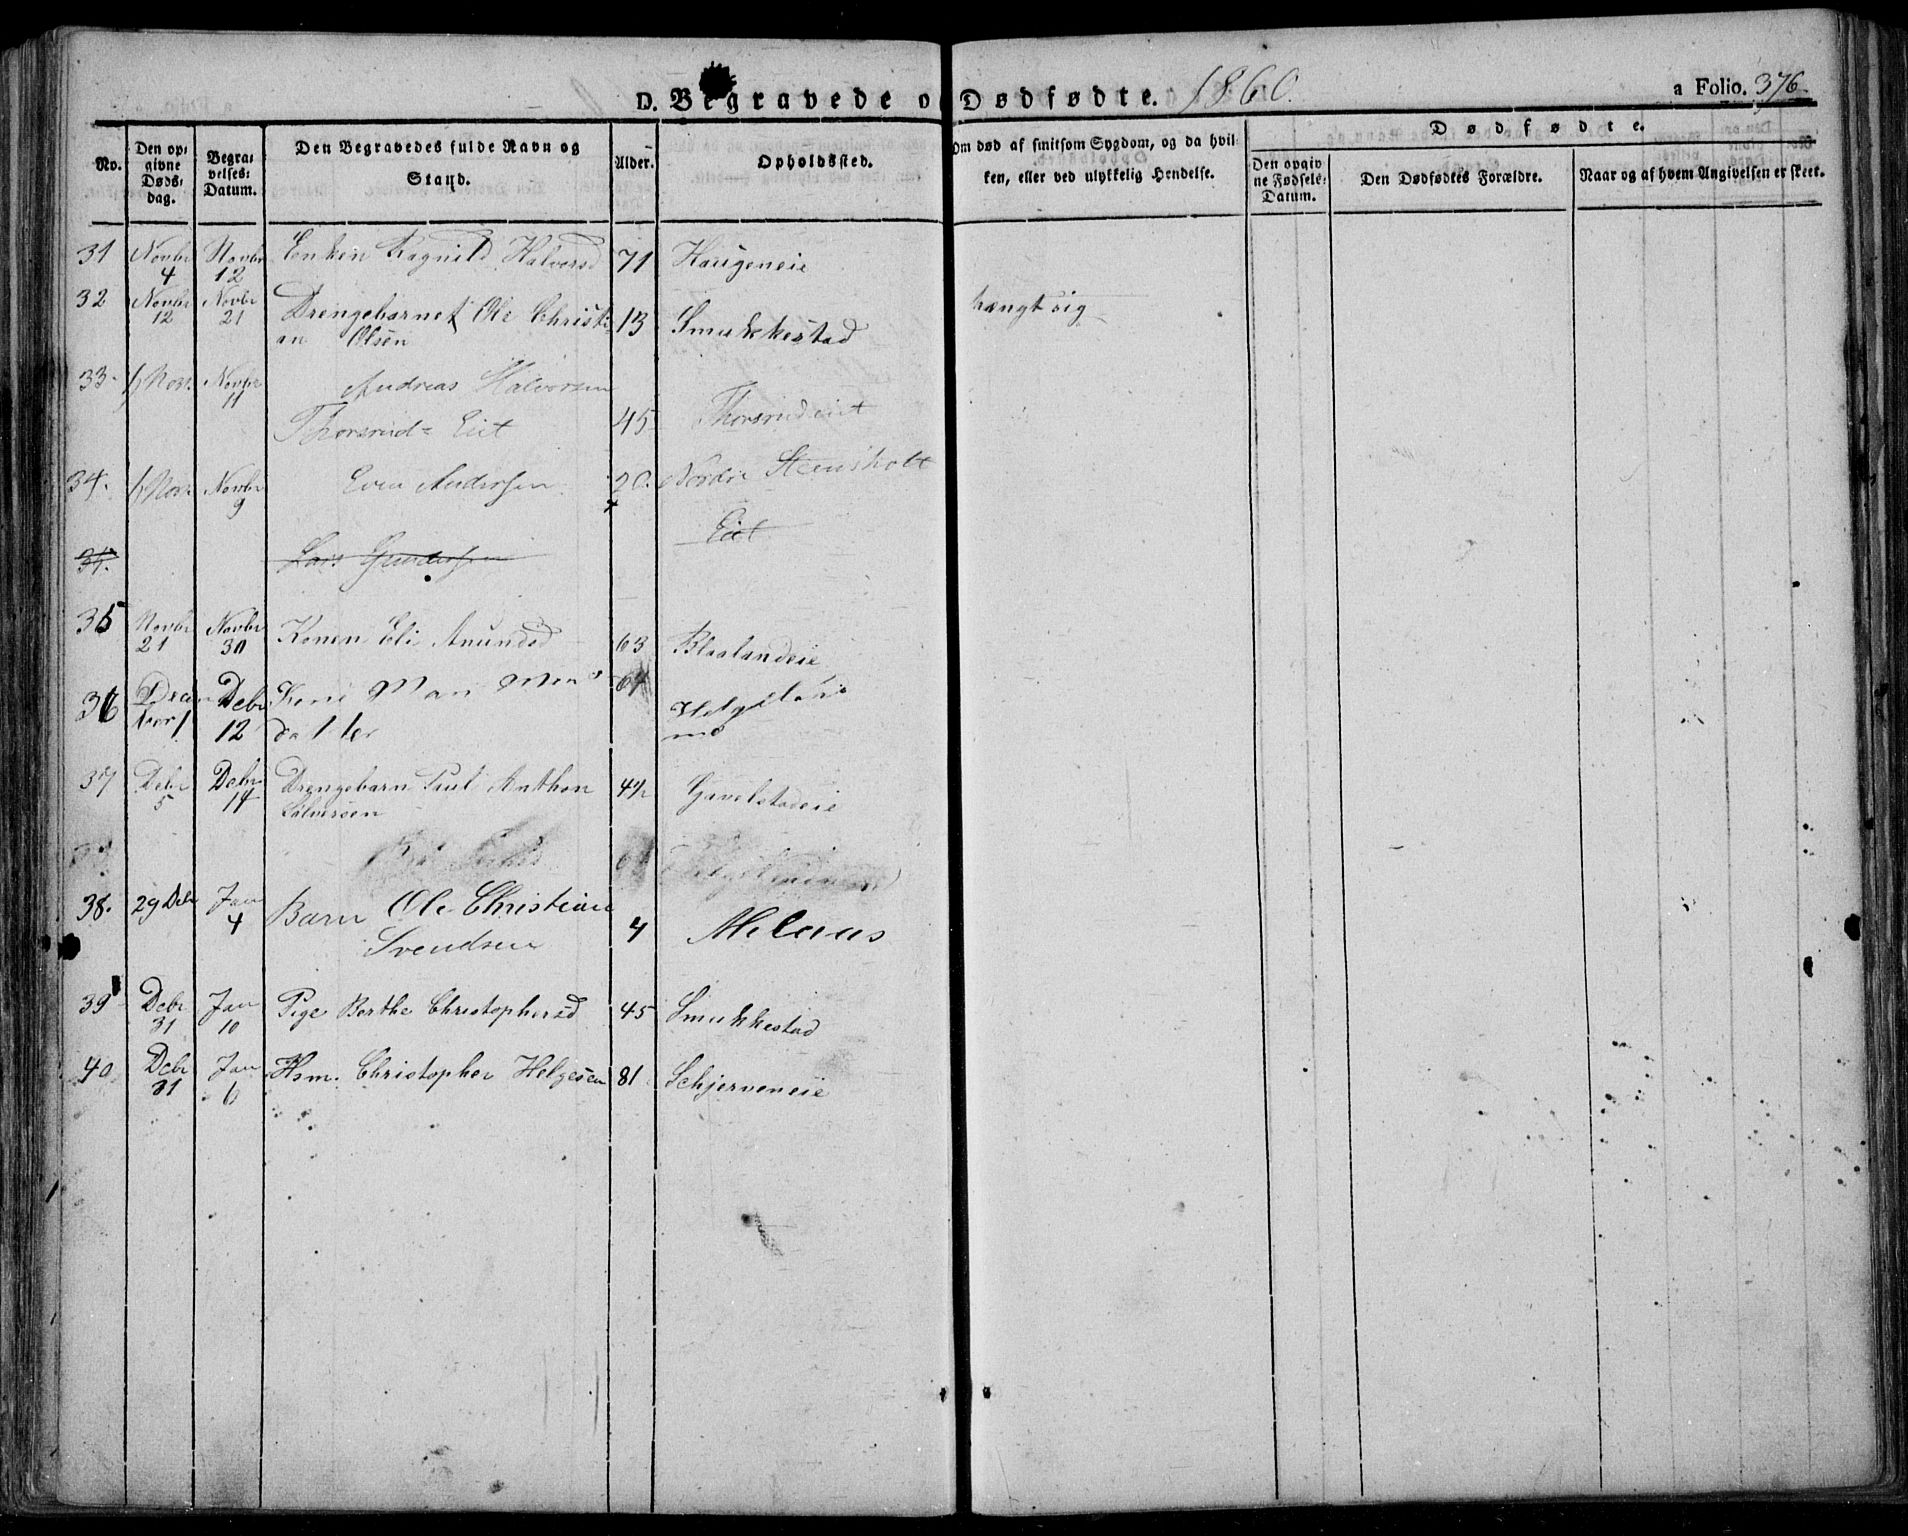 D. Begravede o Dødfødte. 1860.
a Folio. 376.
No.
Den op=
givne
Døds=
dag.
Begra=
velses=
Datum.
Den Begravedes fulde Navn og
Stand.
Alder.
Opholdssted.
Om død af smitsom Sygdom, og da hvil=
ken, eller ved ulykkelig Hendelse.
Dødfødte.
Den opgiv
ne Fødsels=
Datum.
Den Dødfødtes Forældre.
Naar og af hvem Angivelsen er skeet.
31 Novbr 4 Novbr 12 Enken Ragnild Halvorsd 71 Haugeneie
32 Novbr 12 Novbr 21 Drengebarnet Ole Christi= 13 Smukkestad hængt sig
an Olsen
33. Nov. Novbr 11 Andreas Halvorsen
Thorsrud= Eiet 45 Thorsrudeiet
34. Nov. Novbr 9 Even Andersen 20. Nordre Steensholt
Eiet
Lars Gundersen
35 Novbr 21 Novbr 30 Konen Eli Anundsd 63 Blaalandeie
36 Decem
ber 1 Debr 12 Kone Mari
datter 64
37 Debr 5 Debr 14 Drengebarn Paul Anthon 4½ Gavelstadeie
Halvorsen
38. 29 Debr Jan 4 Barn Ole Christian
Svendsen 4 Melaas
39 Debr 31 Jan 10 Pige Berthe Christophersd 45 Smukkestad
40 Debr 31 Jan 6 Hsm. Christopher Helgesen 81 Schjerveneie